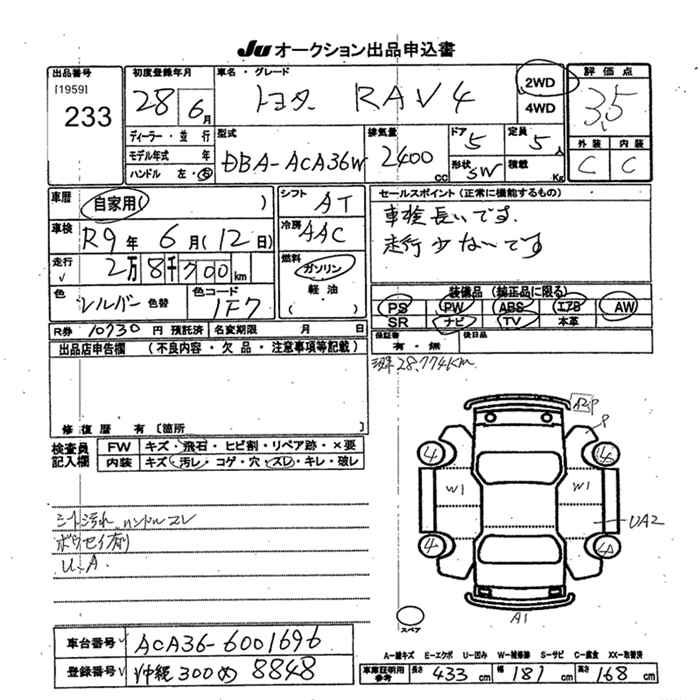 Ju オークション出品申込書
出品番号
[1959]
233
初度登録年月
28 6月
車名・グレード
トヨタ RAV4
2WD
4WD
評価点
3.5
外装 内装
C C
ディーラー・並行
モデル年式 年
ハンドル 左・右
型式
DBA-ACA36W
排気量
2400 CC
ドア 5
定員 5人
形状 SW
積載 Kg
車歴 自家用( )
車検 R9年 6月(12日)
走行 2万8千700km
色 シルバー 色替
色コード 1F7
シフト AT
冷房 AAC
燃料
ガソリン
軽油
( )
セールスポイント(正常に機能するもの)
車検長いです.
走行少ないです
装備品(純正品に限る)
PS PW ABS エアB AW
SR ナビ TV 本革
R券 10730円 預託済 名変期限 月 日
保証書
有・無
後日品
28,774km
出品店申告欄 (不良内容・欠品・注意事項等記載)
修復歴 有〔箇所 〕
検査員記入欄
FW キズ・飛石・ヒビ割・リペア跡・×要
内装 キズ・汚レ・コゲ・穴・スレ・キレ・破レ
シート汚れ ハンドルスレ
ボウセイ剤
U.A
A2P
P
4
W1 W1
UA2
4
A1
スペア
車台番号 ACA36-6001696
登録番号 沖縄300め8848
A-線キズ E-エクボ U-凹み W-補修跡 S-サビ C-腐食 XX-取替済
車庫証明用参考 長さ 433cm 幅 181cm 高さ 168cm